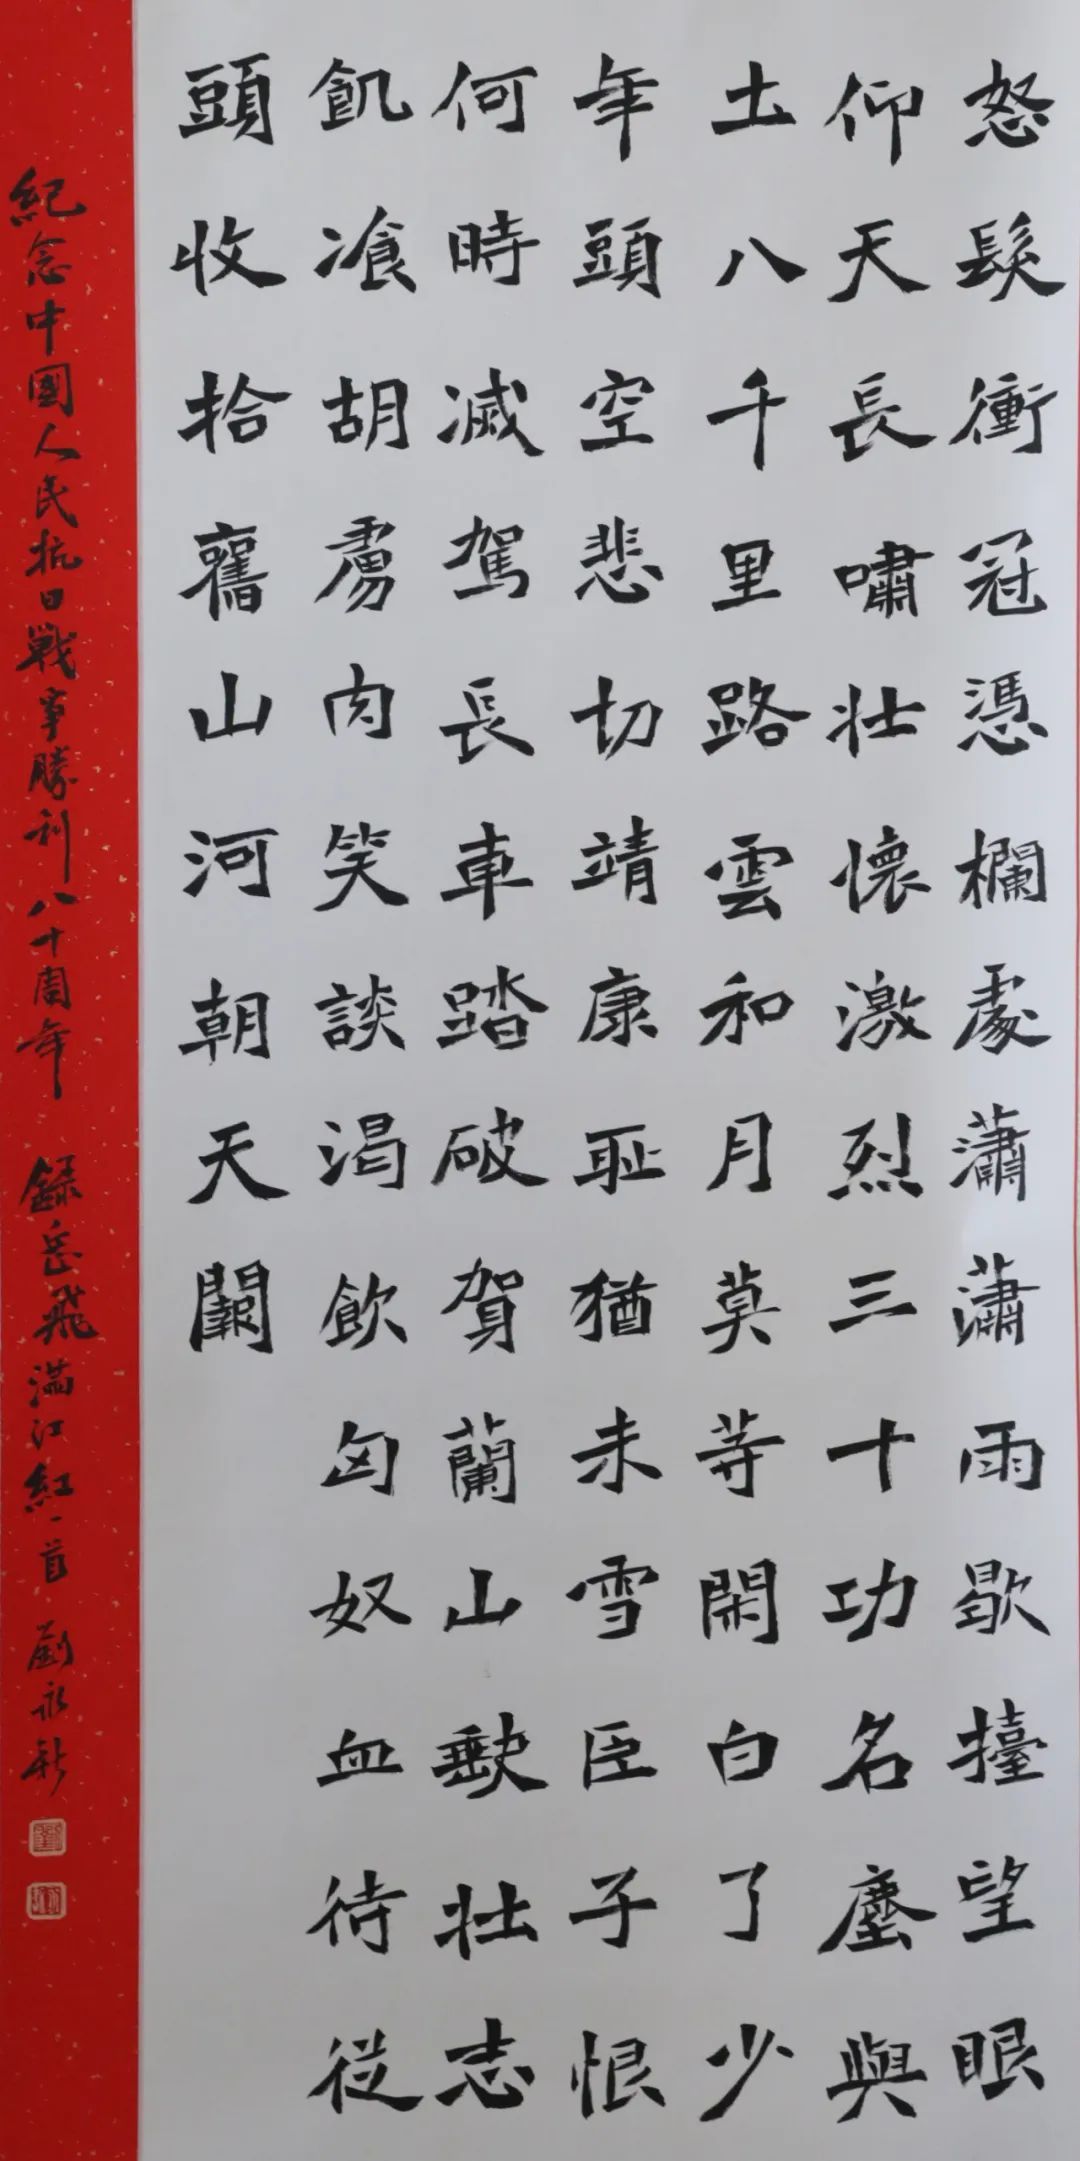 怒髮衝冠憑欄處瀟瀟雨歇擡望眼
仰天長嘯壯懷激烈三十功名塵與
土八千里路雲和月莫等閑白了少
年頭空悲切靖康耻猶未雪臣子恨
何時滅駕長車踏破賀蘭山缺壯志
飢飡胡虜肉笑談渴飲匈奴血待從
頭收拾舊山河朝天闕
紀念中國人民抗日戰爭勝利八十周年 錄岳飛滿江紅一首 劉永新